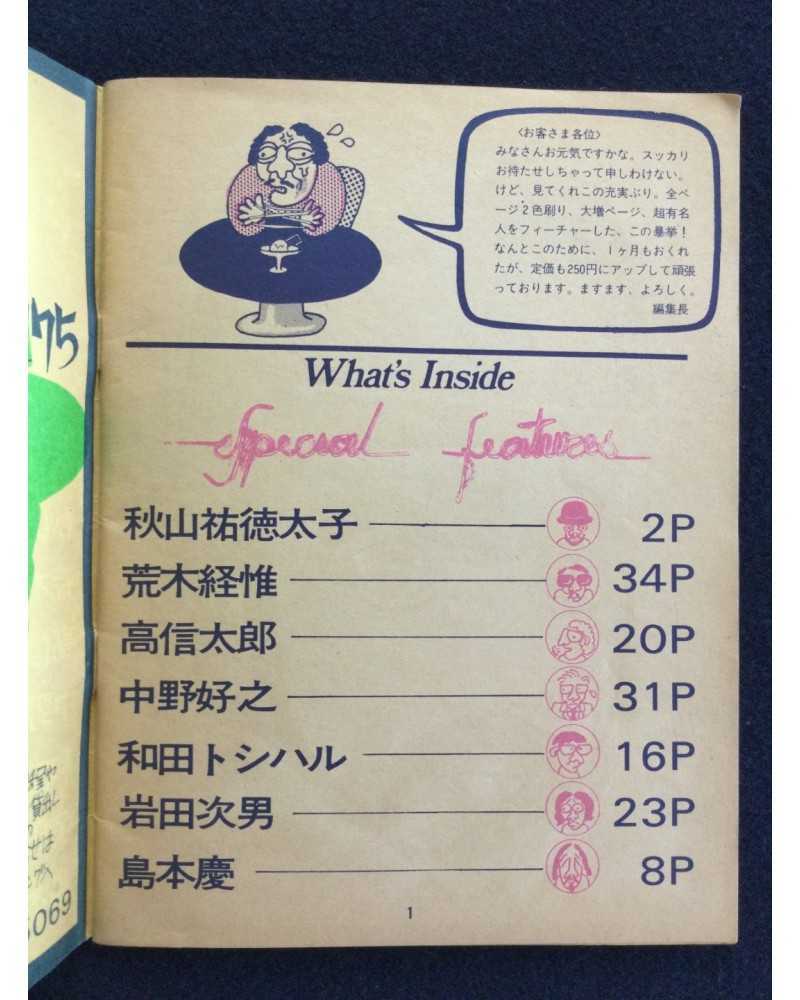 〈お客さま各位〉
みなさんお元気ですかな。スッカリ
お待たせしちゃって申しわけない。
けど、見てくれこの充実ぶり。全ペ
ージ2色刷り、大増ページ、超有名
人をフィーチャーした、この暴挙！
なんとこのために、1ヶ月もおくれ
たが、定価も250円にアップして頑張
っております。ますます、よろしく。
編集長
What's Inside
Special features
秋山祐徳太子 2P
荒木経惟 34P
高信太郎 20P
中野好之 31P
和田トシハル 16P
岩田次男 23P
島本慶 8P
1
75
貸出し
せは
5069